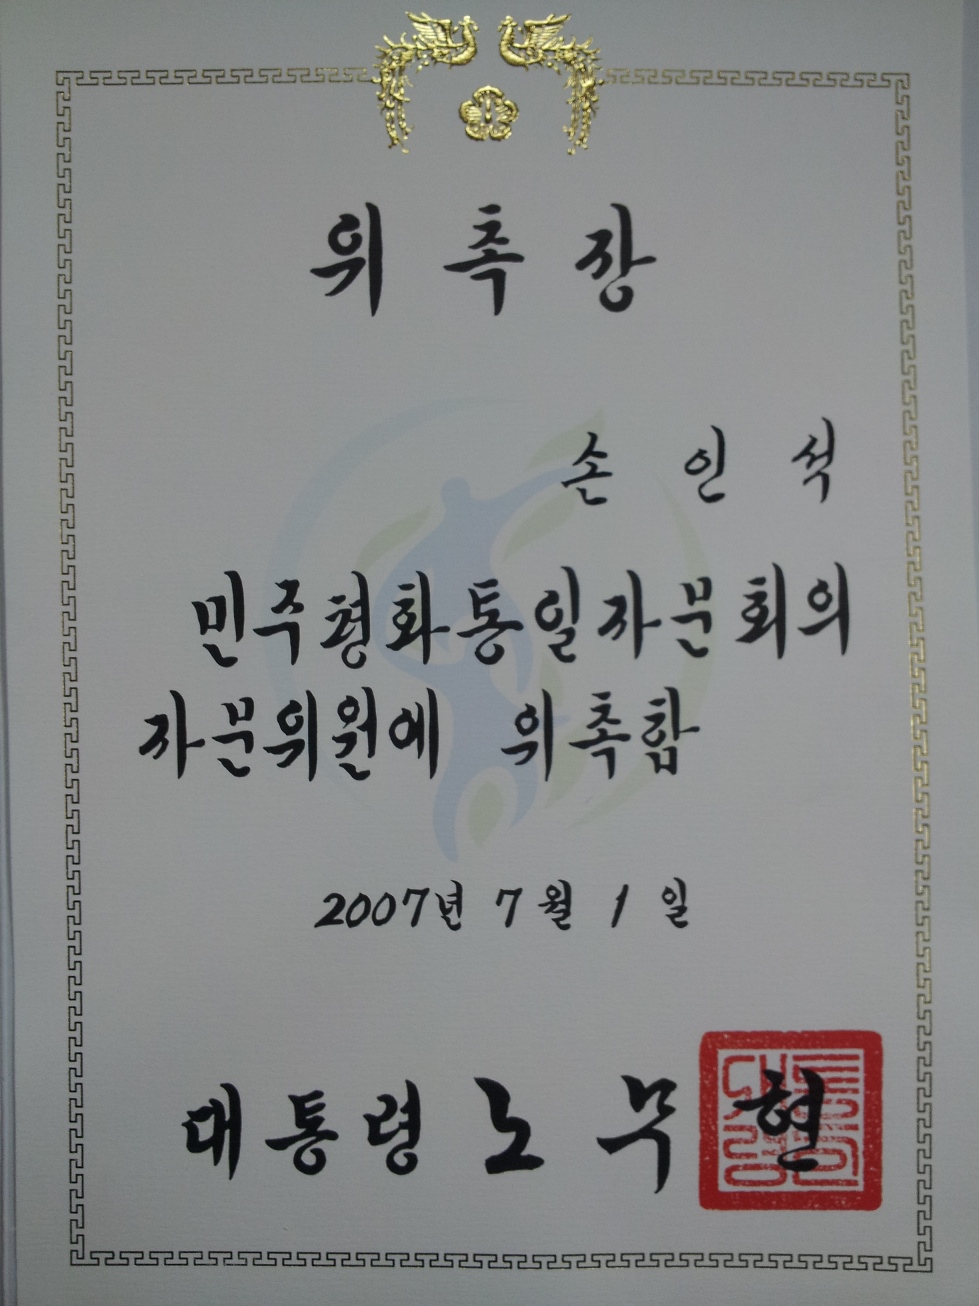 위 촉 장
손 인 석
민주평화통일자문회의
자문위원에 위촉합
2007년 7월 1일
대통령 노무현